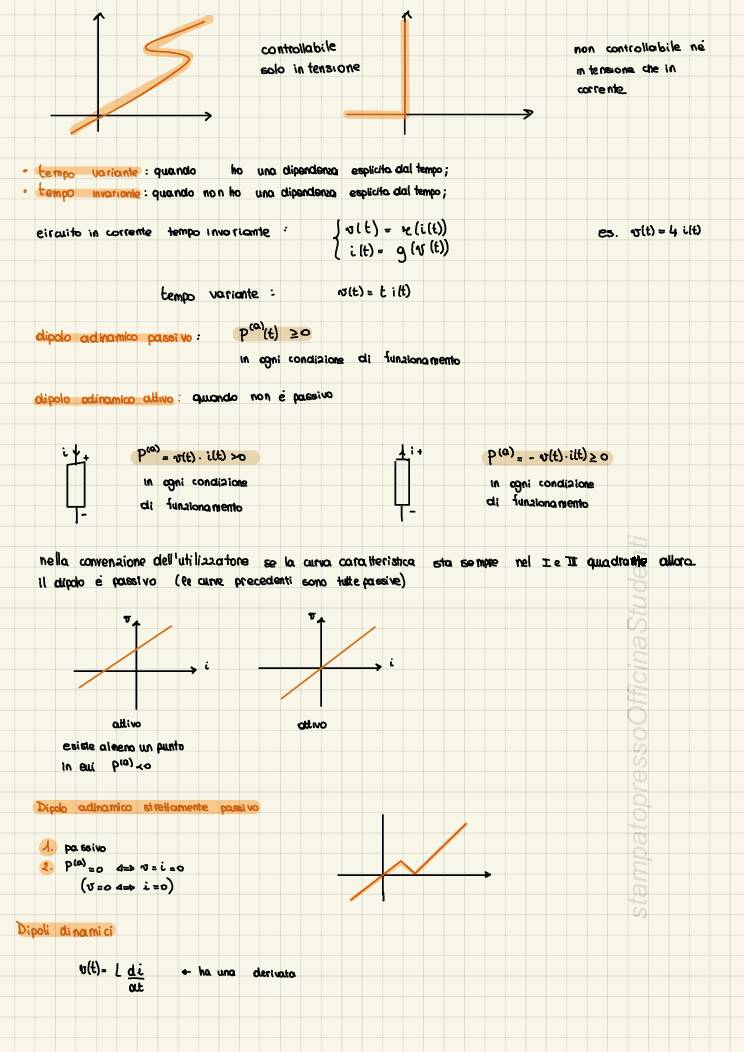 controllabile
solo in tensione
non controllabile né
in tensione che in
corrente
• tempo variante : quando ho una dipendenza esplicita dal tempo;
• tempo invariante : quando non ho una dipendenza esplicita dal tempo;
circuito in corrente tempo invariante : { v(t) = r(i(t))
i(t) = g(v(t))
es. v(t) = 4 i(t)
tempo variante : v(t) = t i(t)
dipolo adinamico passivo : p(a)(t) ≥ 0
in ogni condizione di funzionamento
dipolo adinamico attivo : quando non é passivo
i +
-
p(a) = v(t) · i(t) > 0
in ogni condizione
di funzionamento
i +
-
p(a) = - v(t) · i(t) ≥ 0
in ogni condizione
di funzionamento
nella convenzione dell'utilizzatore se la curva caratteristica sta sempre nel I e III quadrante allora
il dipolo é passivo (le curve precedenti sono tutte passive)
v
i
attivo
esiste almeno un punto
in cui p(a) < 0
v
i
attivo
Dipolo adinamico strettamente passivo
1. passivo
2. p(a) = 0 ⟺ v = i = 0
(v = 0 ⟺ i = 0)
Dipoli dinamici
v(t) = L di
dt
← ha una derivata
stampatopressoOfficinaStudenti